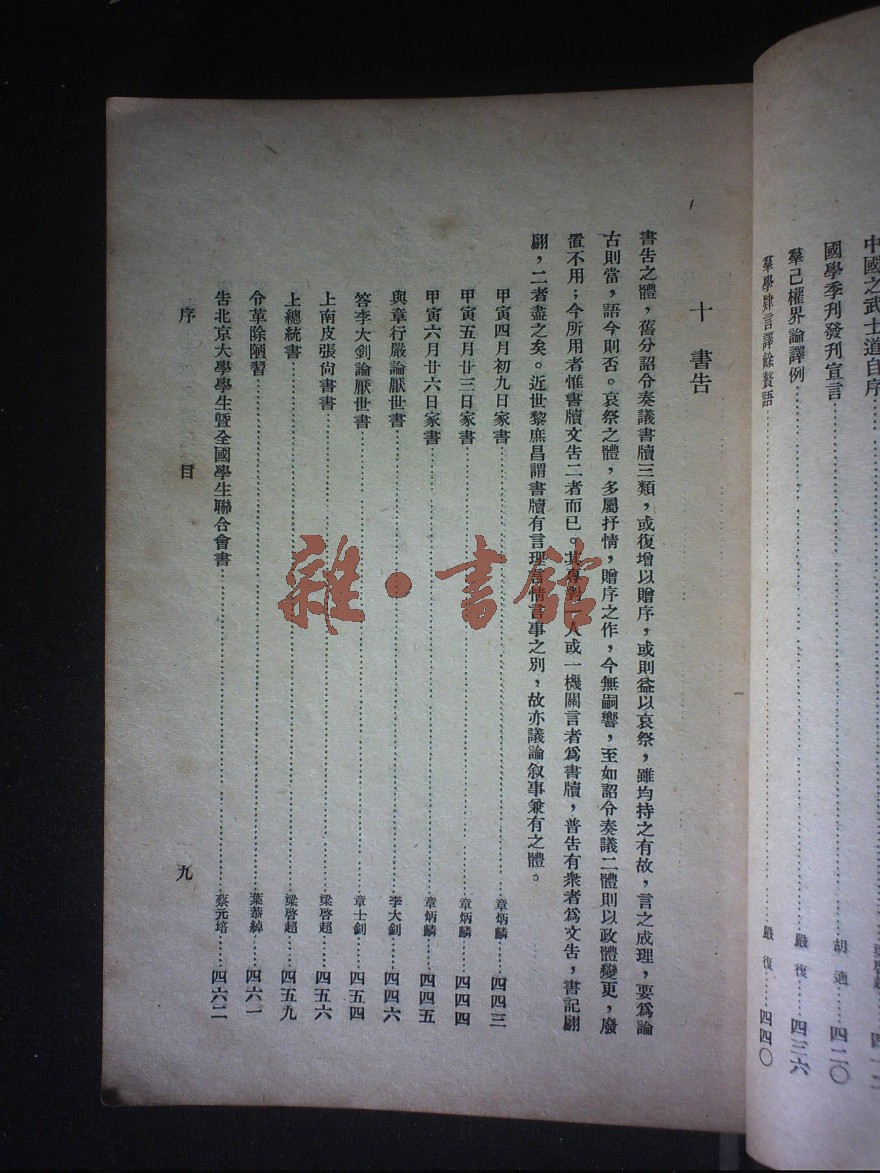 中國之武士道自序
國學季刊發刊宣言……胡適……四二〇
羣己權界論譯例……嚴復……四三六
羣學肄言譯餘贅語……嚴復……四四〇
十　書告
書告之體，舊分詔令奏議書牘三類，或復增以贈序，或則益以哀祭，雖均持之有故，言之成理，要爲論
古則當，語今則否。哀祭之體，多屬抒情，贈序之作，今無嗣響，至如詔令奏議二體則以政體變更，廢
置不用；今所用者惟書牘文告二者而已。其專對一人或一機關言者爲書牘，普告有衆者爲文告，書記翩
翩，二者盡之矣。近世黎庶昌謂書牘有言理言情言事之別，故亦議論敘事兼有之體。
甲寅四月初九日家書……章炳麟……四四三
甲寅五月廿三日家書……章炳麟……四四四
甲寅六月廿六日家書……章炳麟……四四五
與章行嚴論厭世書……李大釗……四四六
答李大釗論厭世書……章士釗……四五四
上南皮張尙書書……梁啓超……四五六
上總統書……梁啓超……四五九
令革除陋習……葉恭綽……四六一
告北京大學學生曁全國學生聯合會書……蔡元培……四六二
序　目　九
雜·書館